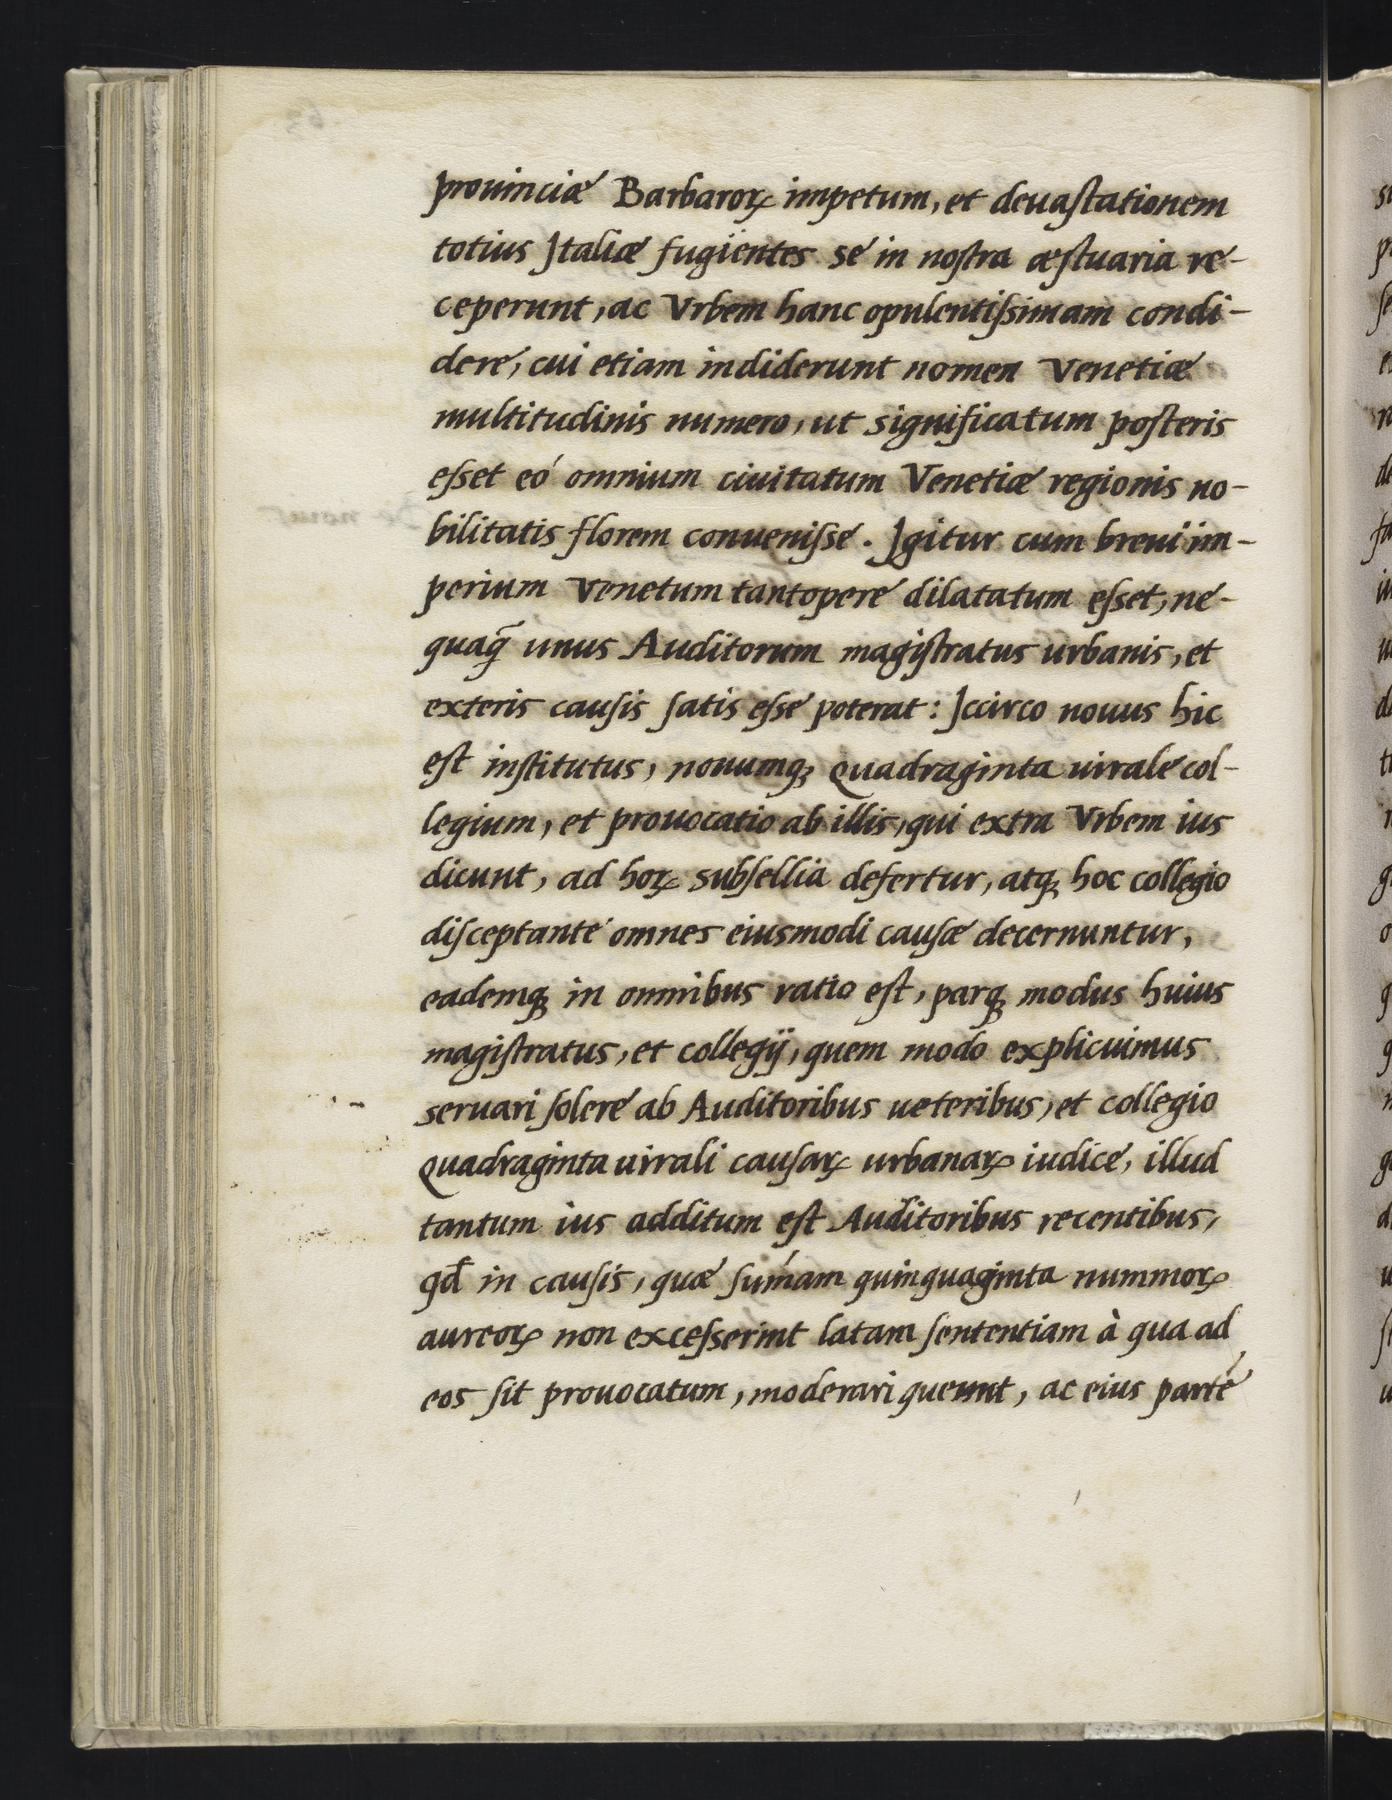 prouinciæ Barbaroꝝ impetum, et deuaſtationem
totius Italiæ fugientes se in noſtra æſtuaria re-
ceperunt, ac Vrbem hanc opulentiſsimam condi-
dere, cui etiam indiderunt nomen Venetiæ
multitudinis numero, ut significatum poſteris
eſset eó omnium ciuitatum Venetiæ regionis no-
bilitatis florem conueniſse. Igitur cum breui im-
perium Venetum tantopere dilatatum eſset, ne-
quaq̃ unus Auditorum magiſtratus urbanis, et
exteris cauſis ſatis eſse poterat: Iccirco nouus hic
eſt inſtitutus, nouumqꝫ Quadraginta uirale col-
legium, et prouocatio ab illis, qui extra Vrbem ius
dicunt, ad hoꝝ subſellia defertur, atqꝫ hoc collegio
diſceptante omnes eiusmodi cauſæ decernuntur,
eademqꝫ in omnibus ratio eſt, parqꝫ modus huius
magiſtratus, et collegij, quem modo explicuimus
seruari ſolere ab Auditoribus ueteribus, et collegio
Quadraginta uirali cauſaꝝ urbanaꝝ iudice, illud
tantum ius additum eſt Auditoribus recentibus,
qđ in cauſis, quæ ſum̃am quinquaginta nummoꝝ
aureoꝝ non exceſserint latam ſententiam à qua ad
eos ſit prouocatum, moderari queunt, ac eius partẽ